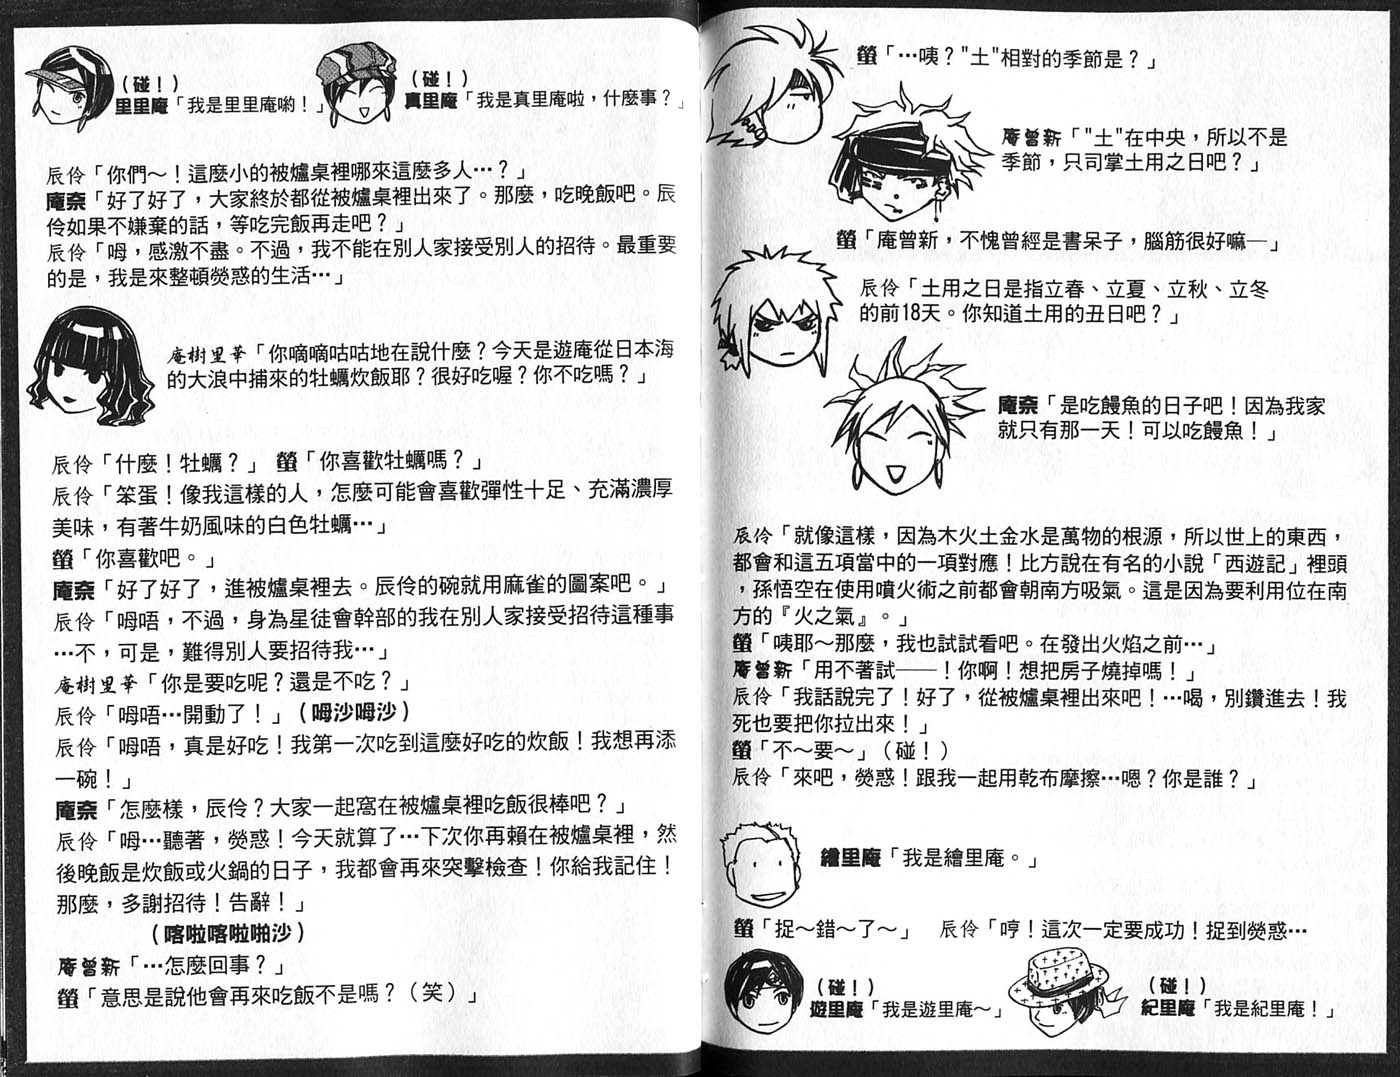 螢「…咦？"土"相對的季節是？」
庵曾新「"土"在中央，所以不是
季節，只司掌土用之日吧？」
螢「庵曾新，不愧曾經是書呆子，腦筋很好嘛—」
辰伶「土用之日是指立春、立夏、立秋、立冬
的前18天。你知道土用的丑日吧？」
庵奈「是吃饅魚的日子吧！因為我家
就只有那一天！可以吃饅魚！」
辰伶「就像這樣，因為木火土金水是萬物的根源，所以世上的東西，
都會和這五項當中的一項對應！比方說在有名的小說「西遊記」裡頭
，孫悟空在使用噴火術之前都會朝南方吸氣。這是因為要利用位在南
方的『火之氣』。」
螢「咦耶～那麼，我也試試看吧。在發出火焰之前…」
庵曾新「用不著試——！你啊！想把房子燒掉嗎！」
辰伶「我話說完了！好了，從被爐桌裡出來吧！…喝，別鑽進去！我
死也要把你拉出來！」
螢「不～要～」（碰！）
辰伶「來吧，熒惑！跟我一起用乾布摩擦…嗯？你是誰？」
繪里庵「我是繪里庵。」
螢「捉～錯～了～」　辰伶「哼！這次一定要成功！捉到熒惑…
（碰！）
遊里庵「我是遊里庵～」
（碰！）
紀里庵「我是紀里庵！」
（碰！）
里里庵「我是里里庵喲！」
（碰！）
真里庵「我是真里庵啦，什麼事？」
辰伶「你們～！這麼小的被爐桌裡哪來這麼多人…？」
庵奈「好了好了，大家終於都從被爐桌裡出來了。那麼，吃晚飯吧。辰
伶如果不嫌棄的話，等吃完飯再走吧？」
辰伶「呣，感激不盡。不過，我不能在別人家接受別人的招待。最重要
的是，我是來整頓熒惑的生活…」
庵樹里華「你嘀嘀咕咕地在說什麼？今天是遊庵從日本海
的大浪中捕來的牡蠣炊飯耶？很好吃喔？你不吃嗎？」
辰伶「什麼！牡蠣？」　螢「你喜歡牡蠣嗎？」
辰伶「笨蛋！像我這樣的人，怎麼可能會喜歡彈性十足、充滿濃厚
美味，有著牛奶風味的白色牡蠣…」
螢「你喜歡吧。」
庵奈「好了好了，進被爐桌裡去。辰伶的碗就用麻雀的圖案吧。」
辰伶「呣唔，不過，身為星徒會幹部的我在別人家接受招待這種事
…不，可是，難得別人要招待我…」
庵樹里華「你是要吃呢？還是不吃？」
辰伶「呣唔…開動了！」（呣沙呣沙）
辰伶「呣唔，真是好吃！我第一次吃到這麼好吃的炊飯！我想再添
一碗！」
庵奈「怎麼樣，辰伶？大家一起窩在被爐桌裡吃飯很棒吧？」
辰伶「呣…聽著，熒惑！今天就算了…下次你再賴在被爐桌裡，然
後晚飯是炊飯或火鍋的日子，我都會再來突擊檢查！你給我記住！
那麼，多謝招待！告辭！」
（喀啦喀啦啪沙）
庵曾新「…怎麼回事？」
螢「意思是說他會再來吃飯不是嗎？（笑）」